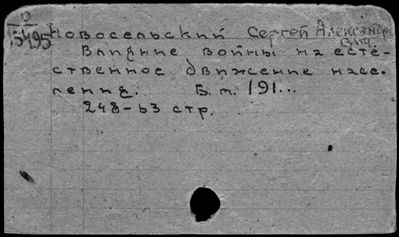 12
15495
Новосельский Сергей Александро
вич.
Влияние войны на есте-
ственное движение насе-
ления. Б. м. 191...
248-63 стр.